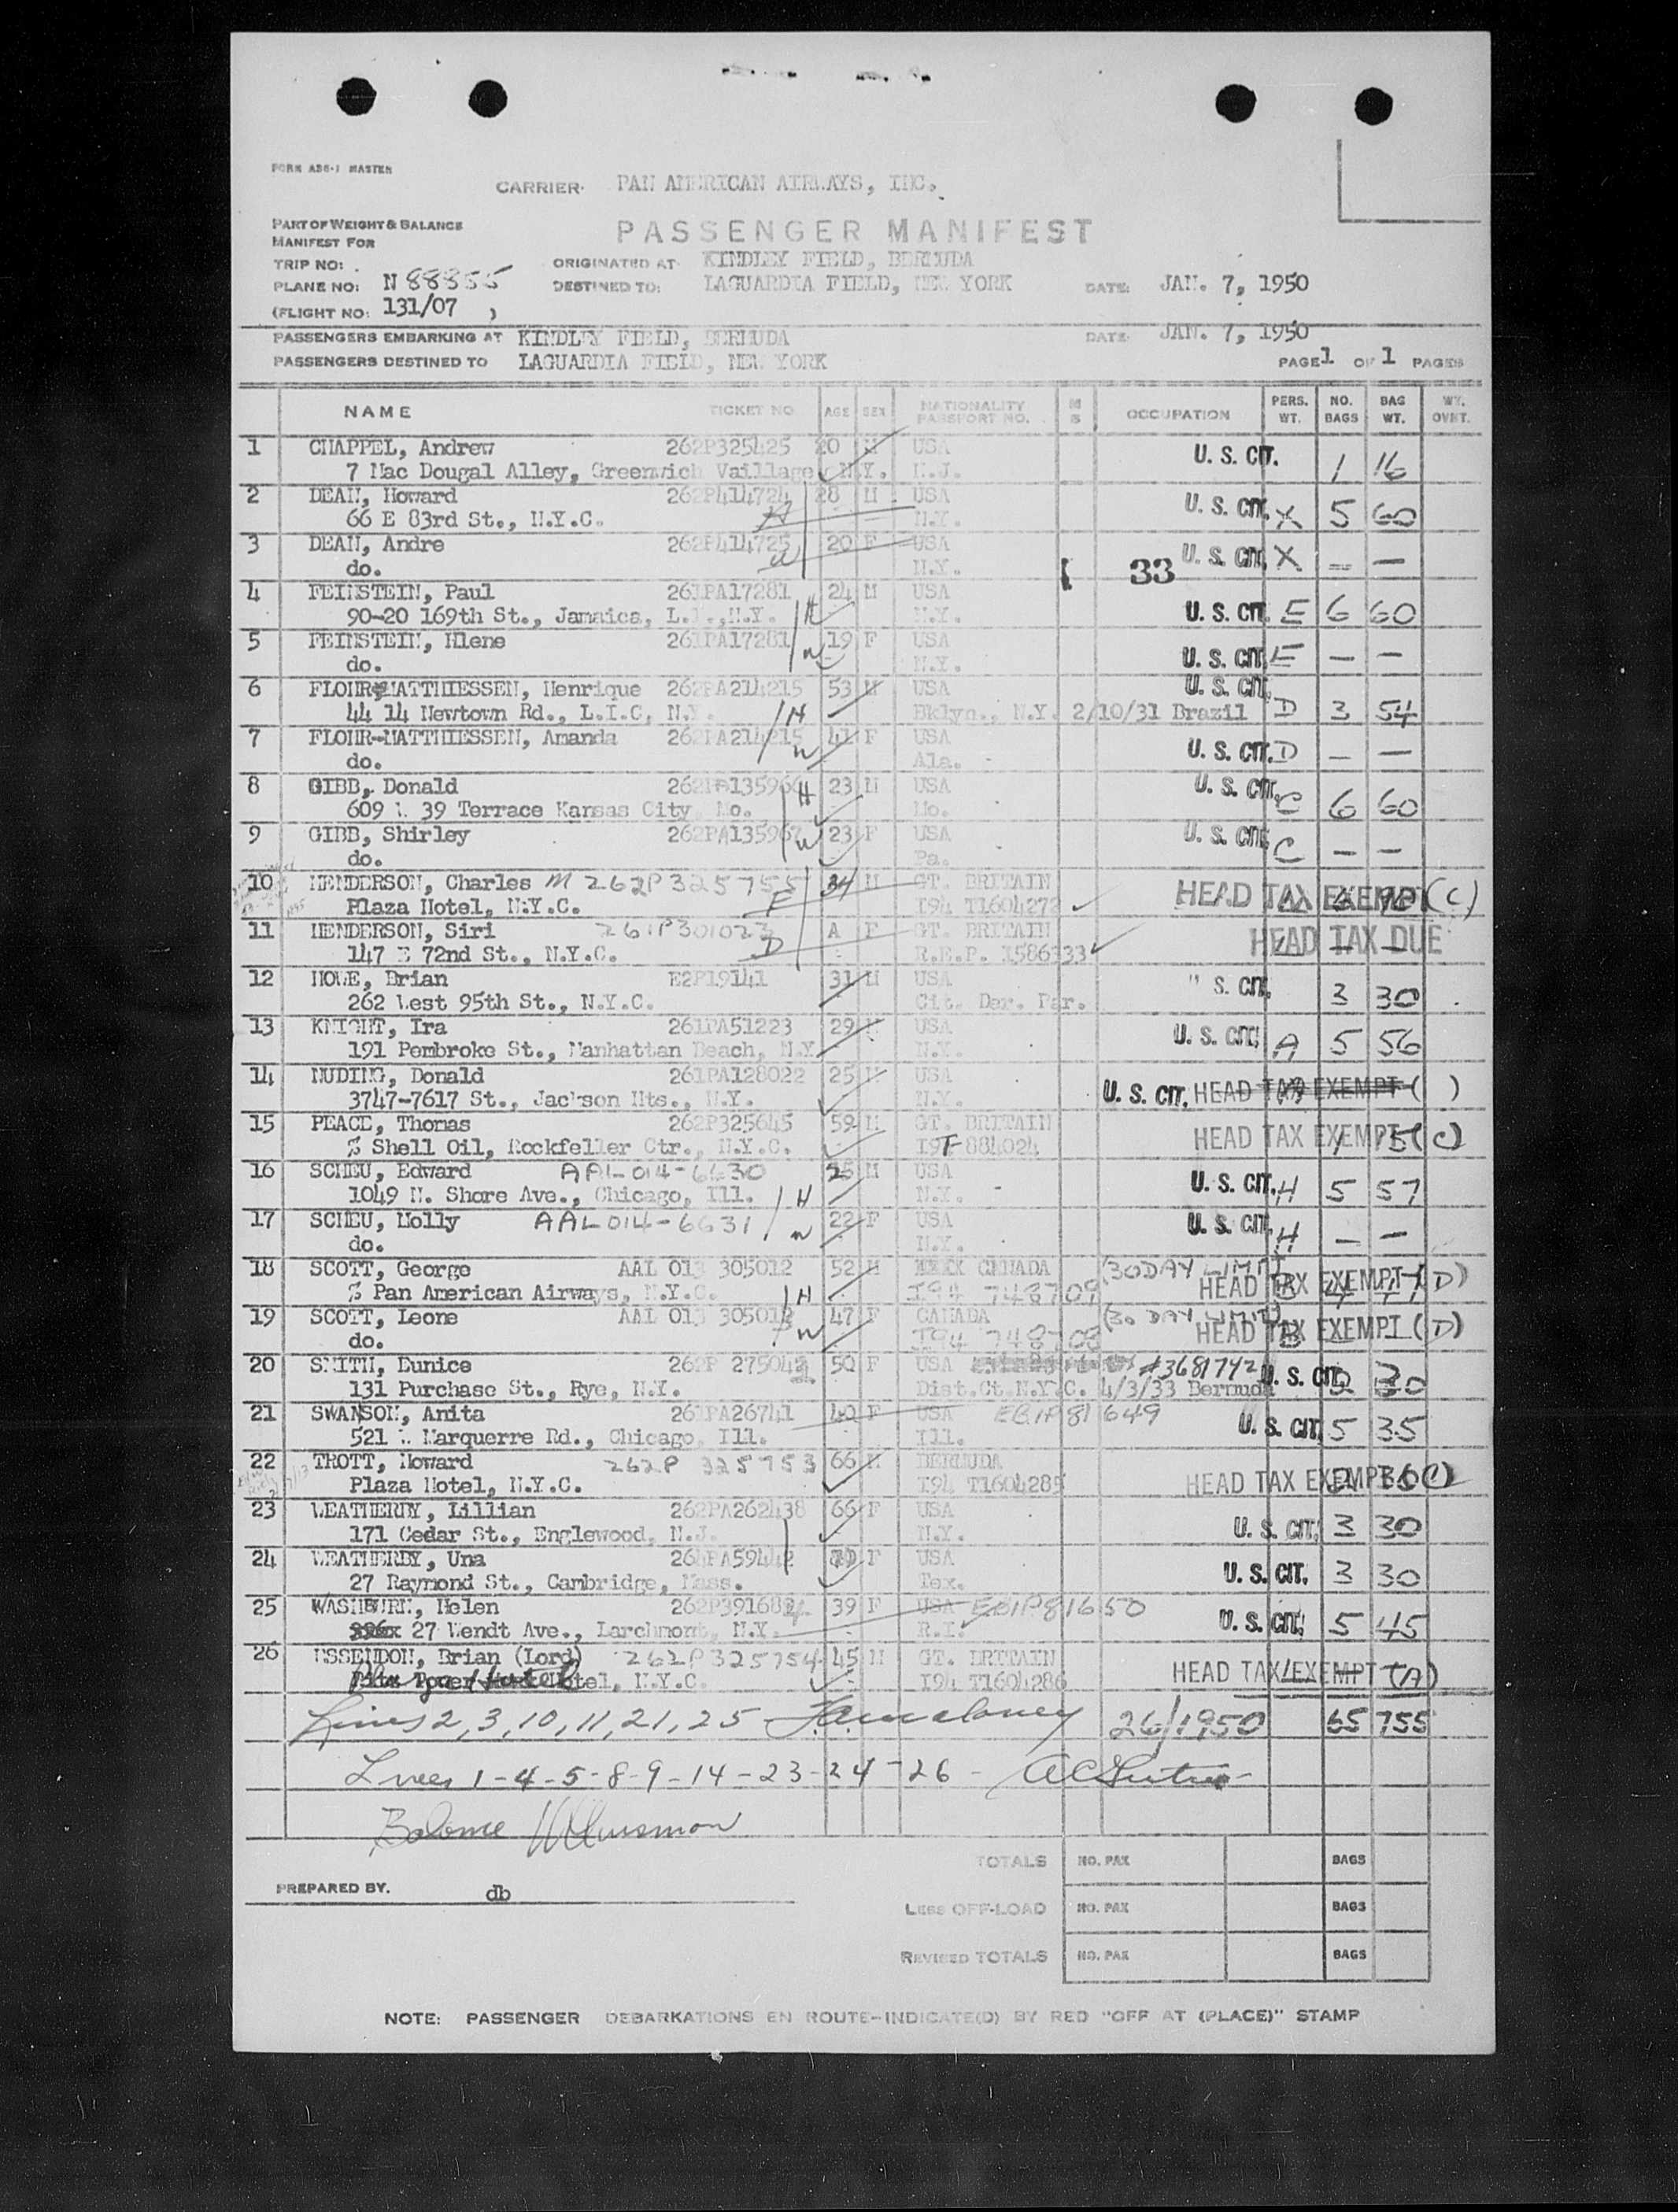 FORM ABS-1 MASTER
CARRIER: PAN AMERICAN AIRWAYS, INC.
PART OF WEIGHT & BALANCE
MANIFEST FOR
PASSENGER MANIFEST
TRIP NO: ORIGINATED AT KINDLEY FIELD, BERMUDA
PLANE NO: N 88855 DESTINED TO: LAGUARDIA FIELD, NEW YORK DATE: JAN. 7, 1950
(FLIGHT NO: 131/07 )
PASSENGERS EMBARKING AT KINDLEY FIELD, BERMUDA DATE: JAN. 7, 1950
PASSENGERS DESTINED TO LAGUARDIA FIELD, NEW YORK PAGE 1 OF 1 PAGES
NAME TICKET NO AGE SEX NATIONALITY PASSPORT NO. M S OCCUPATION PERS. WT. NO. BAGS BAG WT. WT. OVWT.
1 CHAPPEL, Andrew 262P325425 20 M USA U. S. CIT. 1 16
7 Mac Dougal Alley, Greenwich Vaillage, N.Y. N.J.
2 DEAN, Howard 262P414724 28 M USA U. S. CIT. X 5 60
66 E 83rd St., N.Y.C. N.Y.
3 DEAN, Andre 262P414725 20 F USA 33 U. S. CIT. X - -
do. W N.Y.
4 FEINSTEIN, Paul 261PA17281 24 M USA
90-20 169th St., Jamaica, L.I.,N.Y. H N.Y. U. S. CIT. E 6 60
5 FEINSTEIN, Hlene 261PA17281 19 F USA
do. W N.Y. U. S. CIT. E - -
6 FLOHR-MATTHIESSEN, Henrique 262PA214215 53 M USA U. S. CIT.
44 14 Newtown Rd., L.I.C, N.Y. H Bklyn., N.Y. 2/10/31 Brazil D 3 54
7 FLOHR-MATTHIESSEN, Amanda 262PA214215 41 F USA U. S. CIT. D - -
do. W Ala.
8 GIBB, Donald 262PA135966 H 23 M USA U. S. CIT. C 6 60
609 W 39 Terrace Kansas City Mo. Mo.
9 GIBB, Shirley 262PA135967 W 23 F USA U. S. CIT. C - -
do. Pa.
10 HENDERSON, Charles M 262P325755 34 M GT. BRITAIN HEAD TAX EXEMPT (C)
Plaza Hotel, N.Y.C. F I94 T1604272
11 HENDERSON, Siri 261P301023 A F GT. BRITAIN HEAD TAX DUE
147 E 72nd St., N.Y.C. D R.E.P. 1586333
12 HOWE, Brian E2P19141 31 M USA U. S. CIT. 3 30
262 West 95th St., N.Y.C. Cit. Der. Par.
13 KNIGHT, Ira 261PA51223 29 M USA U. S. CIT. A 5 56
191 Pembroke St., Manhattan Beach, N.Y. N.Y.
14 NUDING, Donald 261PA128022 25 M USA U. S. CIT. HEAD TAX EXEMPT ( )
3747-7617 St., Jackson Hts., N.Y. N.Y.
15 PEACE, Thomas 262P325645 59 M GT. BRITAIN HEAD TAX EXEMPT (C)
% Shell Oil, Rockfeller Ctr., N.Y.C. I9F 884024
16 SCHEU, Edward AAL 014-6630 25 M USA U. S. CIT. H 5 57
1049 N. Shore Ave., Chicago, Ill. H N.Y.
17 SCHEU, Molly AAL 014-6631 22 F USA U. S. CIT. H - -
do. W N.Y.
18 SCOTT, George AAL 013 305012 52 M CANADA (30 DAY LIMIT) HEAD TAX EXEMPT (D)
% Pan American Airways, N.Y.C. H I94 748709
19 SCOTT, Leone AAL 013 305013 47 F CANADA (30 DAY LIMIT) HEAD TAX EXEMPT (D)
do. W I94 748708
20 SMITH, Eunice 262P 275042 50 F USA #3681742 U. S. CIT. 2 30
131 Purchase St., Rye, N.Y. Dist.Ct.N.Y.C. 4/3/33 Bermuda
21 SWANSON, Anita 261PA26741 40 F USA EB1P81649 U. S. CIT. 5 35
521 W Marquerre Rd., Chicago, Ill. Ill.
22 TROTT, Howard 262P 325753 66 M BERMUDA HEAD TAX EXEMPT (C)
Plaza Hotel, N.Y.C. I94 T1604285
23 WEATHERBY, Lillian 262PA262438 66 F USA U. S. CIT. 3 30
171 Cedar St., Englewood, N.J. N.Y.
24 WEATHERBY, Una 264PA59442 F USA U. S. CIT. 3 30
27 Raymond St., Cambridge, Mass. Tex.
25 WASHBURN, Helen 262P391684 39 F USA EB1P81650 U. S. CIT. 5 45
27 Wendt Ave., Larchmont, N.Y. R.I.
26 USSENDON, Brian (Lord) 262P325754 45 M GT. BRITAIN HEAD TAX EXEMPT (A)
Hotel, N.Y.C. I94 T1604286
Lines 2, 3, 10, 11, 21, 25 26/1950 65 755
Lines 1-4-5-8-9-14-23-24-26-
Balance
TOTALS NO. PAX BAGS
PREPARED BY. db
LESS OFF-LOAD NO. PAX BAGS
REVISED TOTALS NO. PAX BAGS
NOTE: PASSENGER DEBARKATIONS EN ROUTE-INDICATE(D) BY RED "OFF AT (PLACE)" STAMP